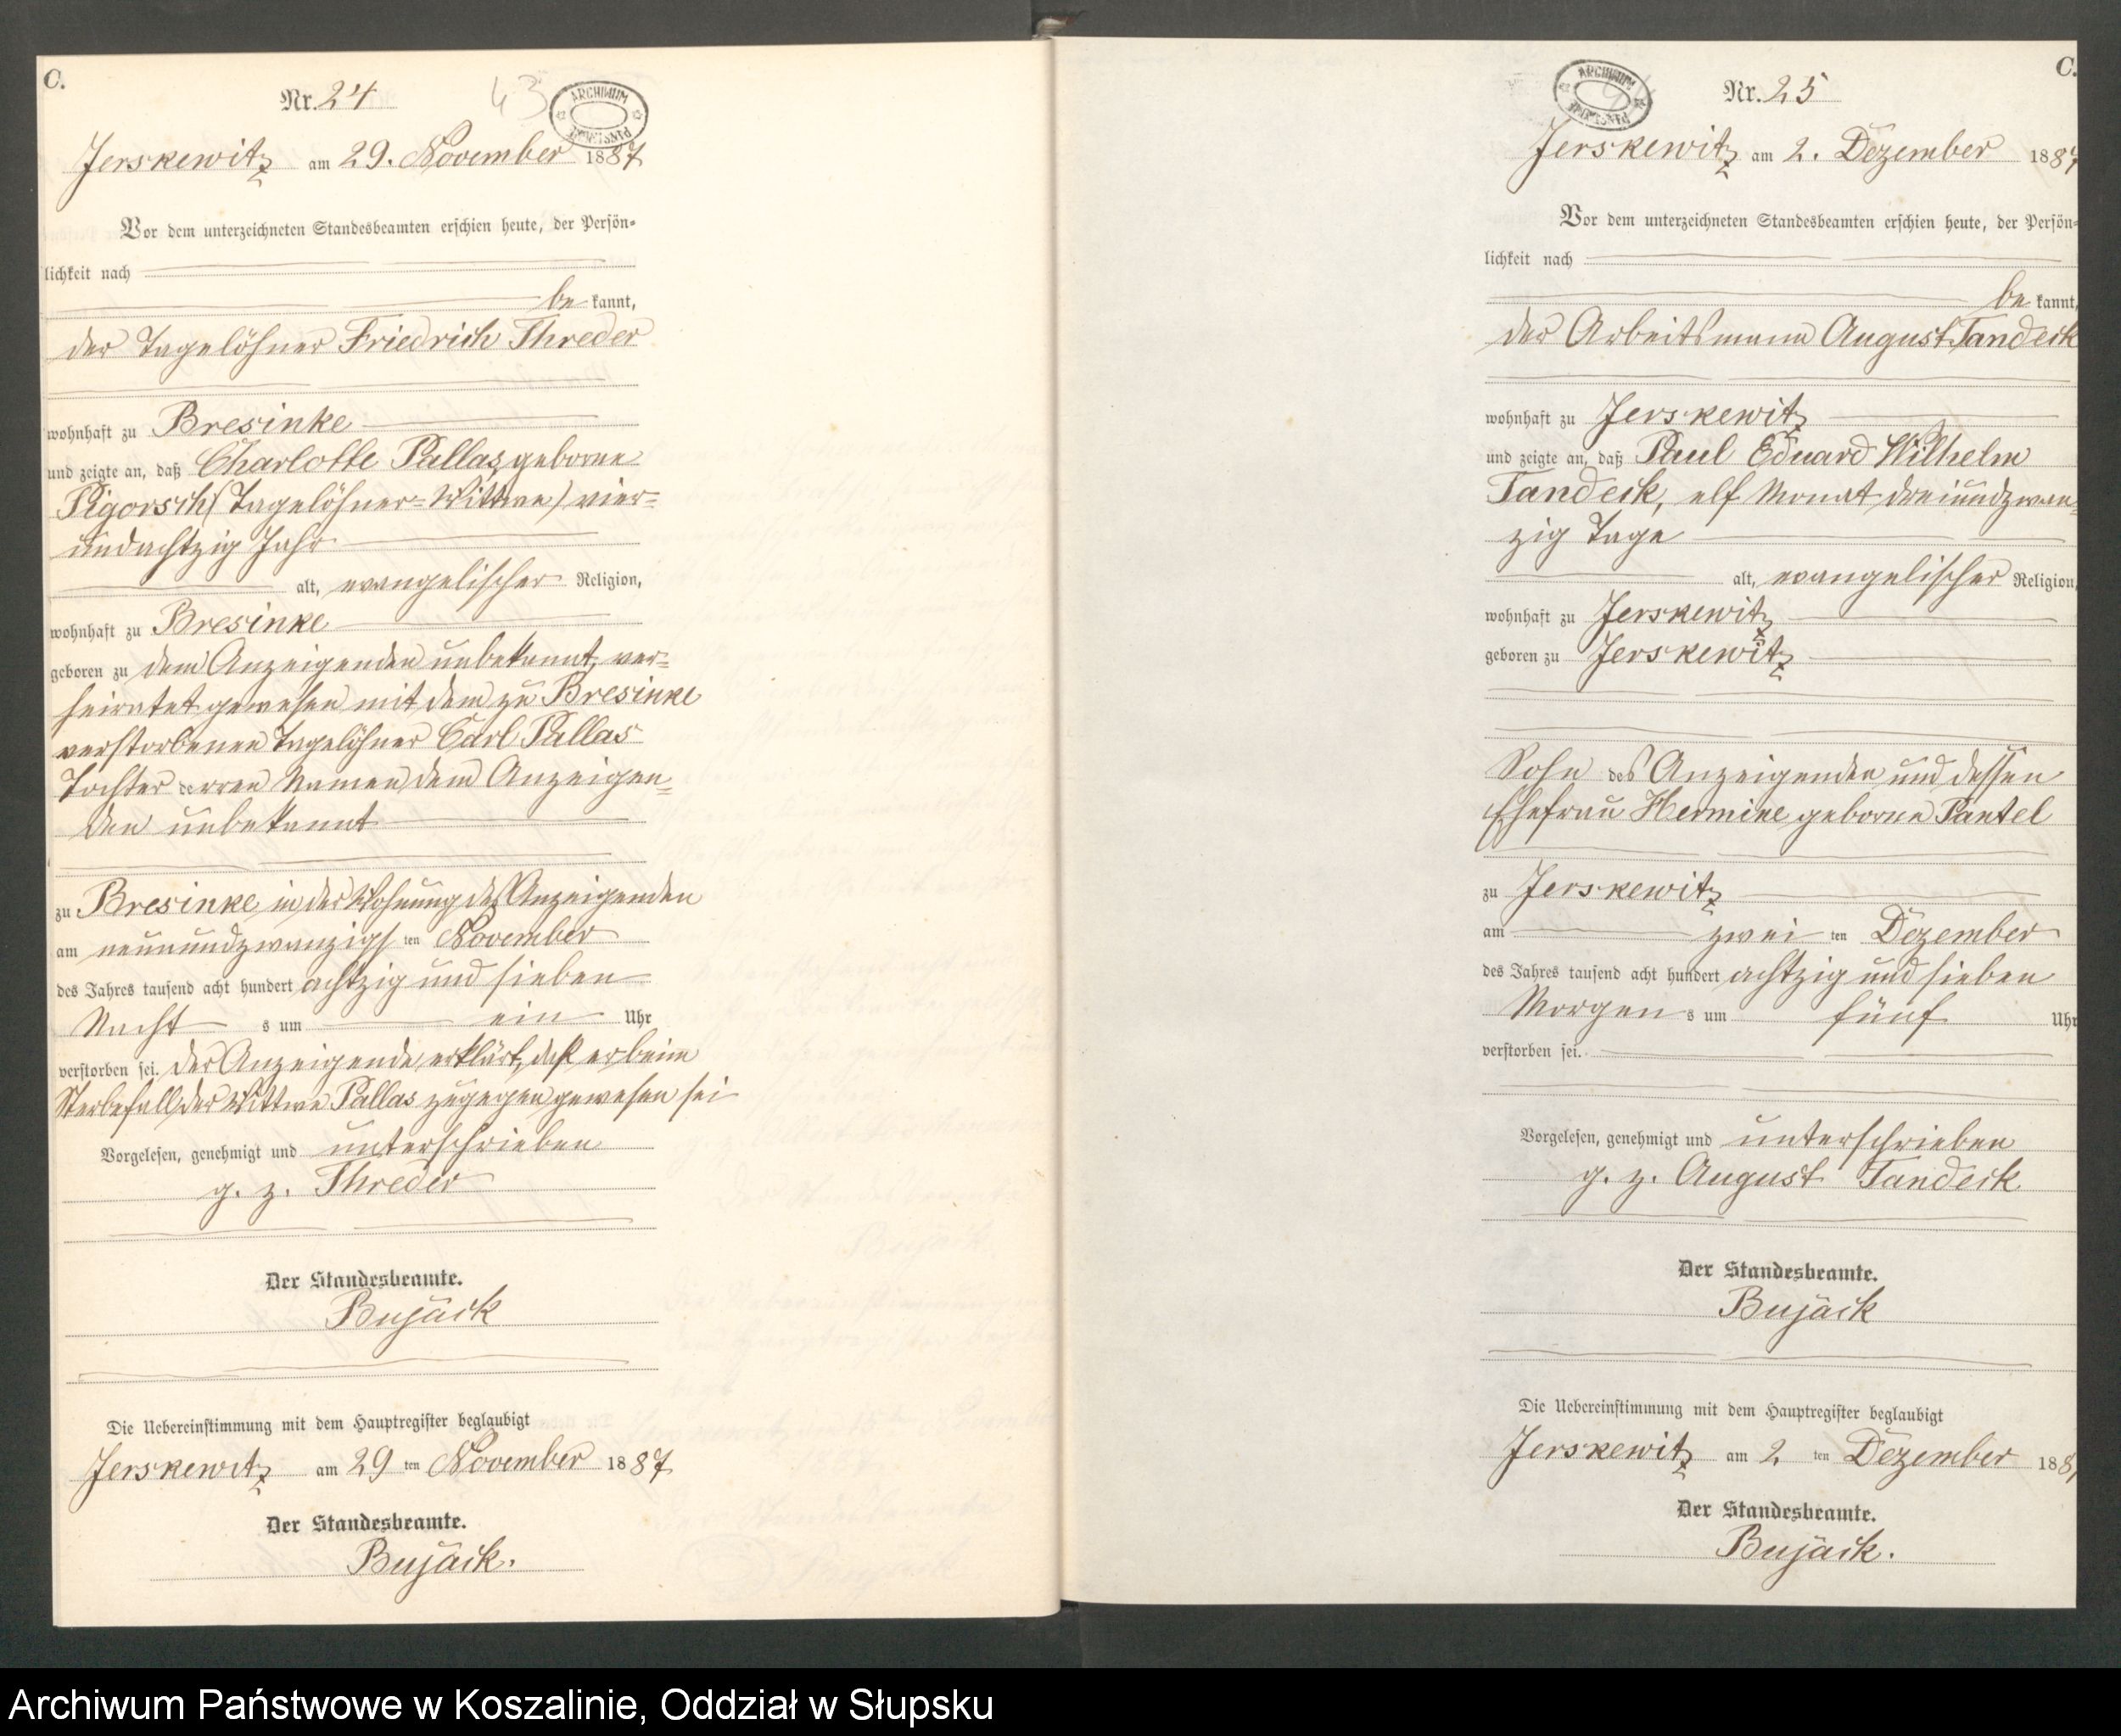 C.
Nr. 24
43
ARCHIWUM PAŃSTWOWE
Jerskewitz am 29. November 1887
Vor dem unterzeichneten Standesbeamten erschien heute, der Persön-
lichkeit nach
be kannt,
der Tagelöhner Friedrich Threder
wohnhaft zu Bresinke
und zeigte an, daß Charlotte Pallas, geborne
Pigorsch (Tagelöhner-Wittwe) vier-
undachtzig Jahr
alt, evangelischer Religion,
wohnhaft zu Bresinke
geboren zu dem Anzeigenden unbekannt, ver-
heiratet gewesen mit dem zu Bresinke
verstorbenen Tagelöhner Carl Pallas
Tochter derren Namen dem Anzeigen-
den unbekannt
zu Bresinke in der Wohnung des Anzeigenden
am neunundzwanzigsten November
des Jahres tausend acht hundert achtzig und sieben
Nacht s um ein Uhr
verstorben sei. Der Anzeigende erklärt, daß er beim
Sterbefall der Wittwe Pallas zugegen gewesen sei
Vorgelesen, genehmigt und unterschrieben
g. z. Threder
Der Standesbeamte.
Bujack
Die Uebereinstimmung mit dem Hauptregister beglaubigt
Jerskewitz am 29 ten November 1887
Der Standesbeamte.
Bujack.
C.
Nr. 25
ARCHIWUM PAŃSTWOWE
Jerskewitz am 2. Dezember 1887
Vor dem unterzeichneten Standesbeamten erschien heute, der Persön-
lichkeit nach
be kannt,
der Arbeitsmann August Tandeck
wohnhaft zu Jerskewitz
und zeigte an, daß Paul Eduard Wilhelm
Tandeck, elf Monat dreiundzwan-
zig Tage
alt, evangelischer Religion,
wohnhaft zu Jerskewitz
geboren zu Jerskewitz
Sohn des Anzeigenden und dessen
Ehefrau Hermine geborne Pantel
zu Jerskewitz
am zwei ten Dezember
des Jahres tausend acht hundert achtzig und sieben
Morgen s um fünf Uhr
verstorben sei.
Vorgelesen, genehmigt und unterschrieben
g. z. August Tandeck
Der Standesbeamte.
Bujack
Die Uebereinstimmung mit dem Hauptregister beglaubigt
Jerskewitz am 2. ten Dezember 1887
Der Standesbeamte.
Bujack.
Archiwum Państwowe w Koszalinie, Oddział w Słupsku